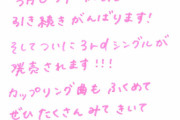 引き続きがんばります!
そしてついに3rdシングルが
発売されます!!!
カップリング曲もふくめて
ぜひたくさんみてきいて